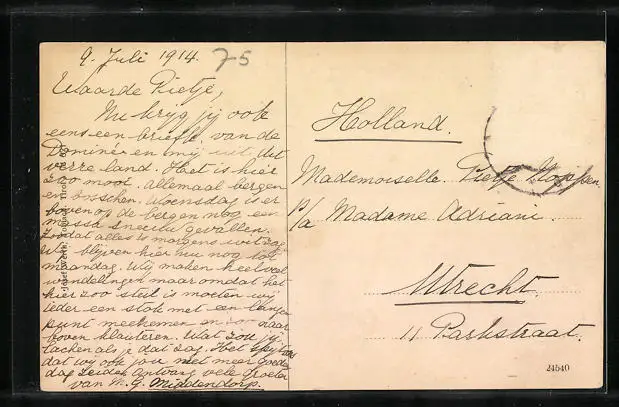 9. Juli 1914.
75
Waarde Pietje,
Nu krijg jij ook
eens een briefk. van de
Dominé en mij uit dit
verre land. Het is hier
zoo mooi. allemaal bergen
en bosschen. Woensdag is er
boven op de bergen nog een
massa sneeuw gevallen.
zoodat alles 's morgens wit zag.
Wij blijven hier nu nog tot
maandag. Wij maken heel veel
wandelingen maar omdat het
hier zoo steil is moeten wij
ieder een stok met een
punt meenemen en zoo naar
boven klauteren. Wat zou jij
lachen als je dat zag. Het
dat wij ook jou niet meer goeden
dag zeiden Ontvang vele groeten
van W. G. Middendorp.
Holland.
Mademoiselle Pietje
p/a Madame Adriani.
Utrecht.
11 Parkstraat.
24540